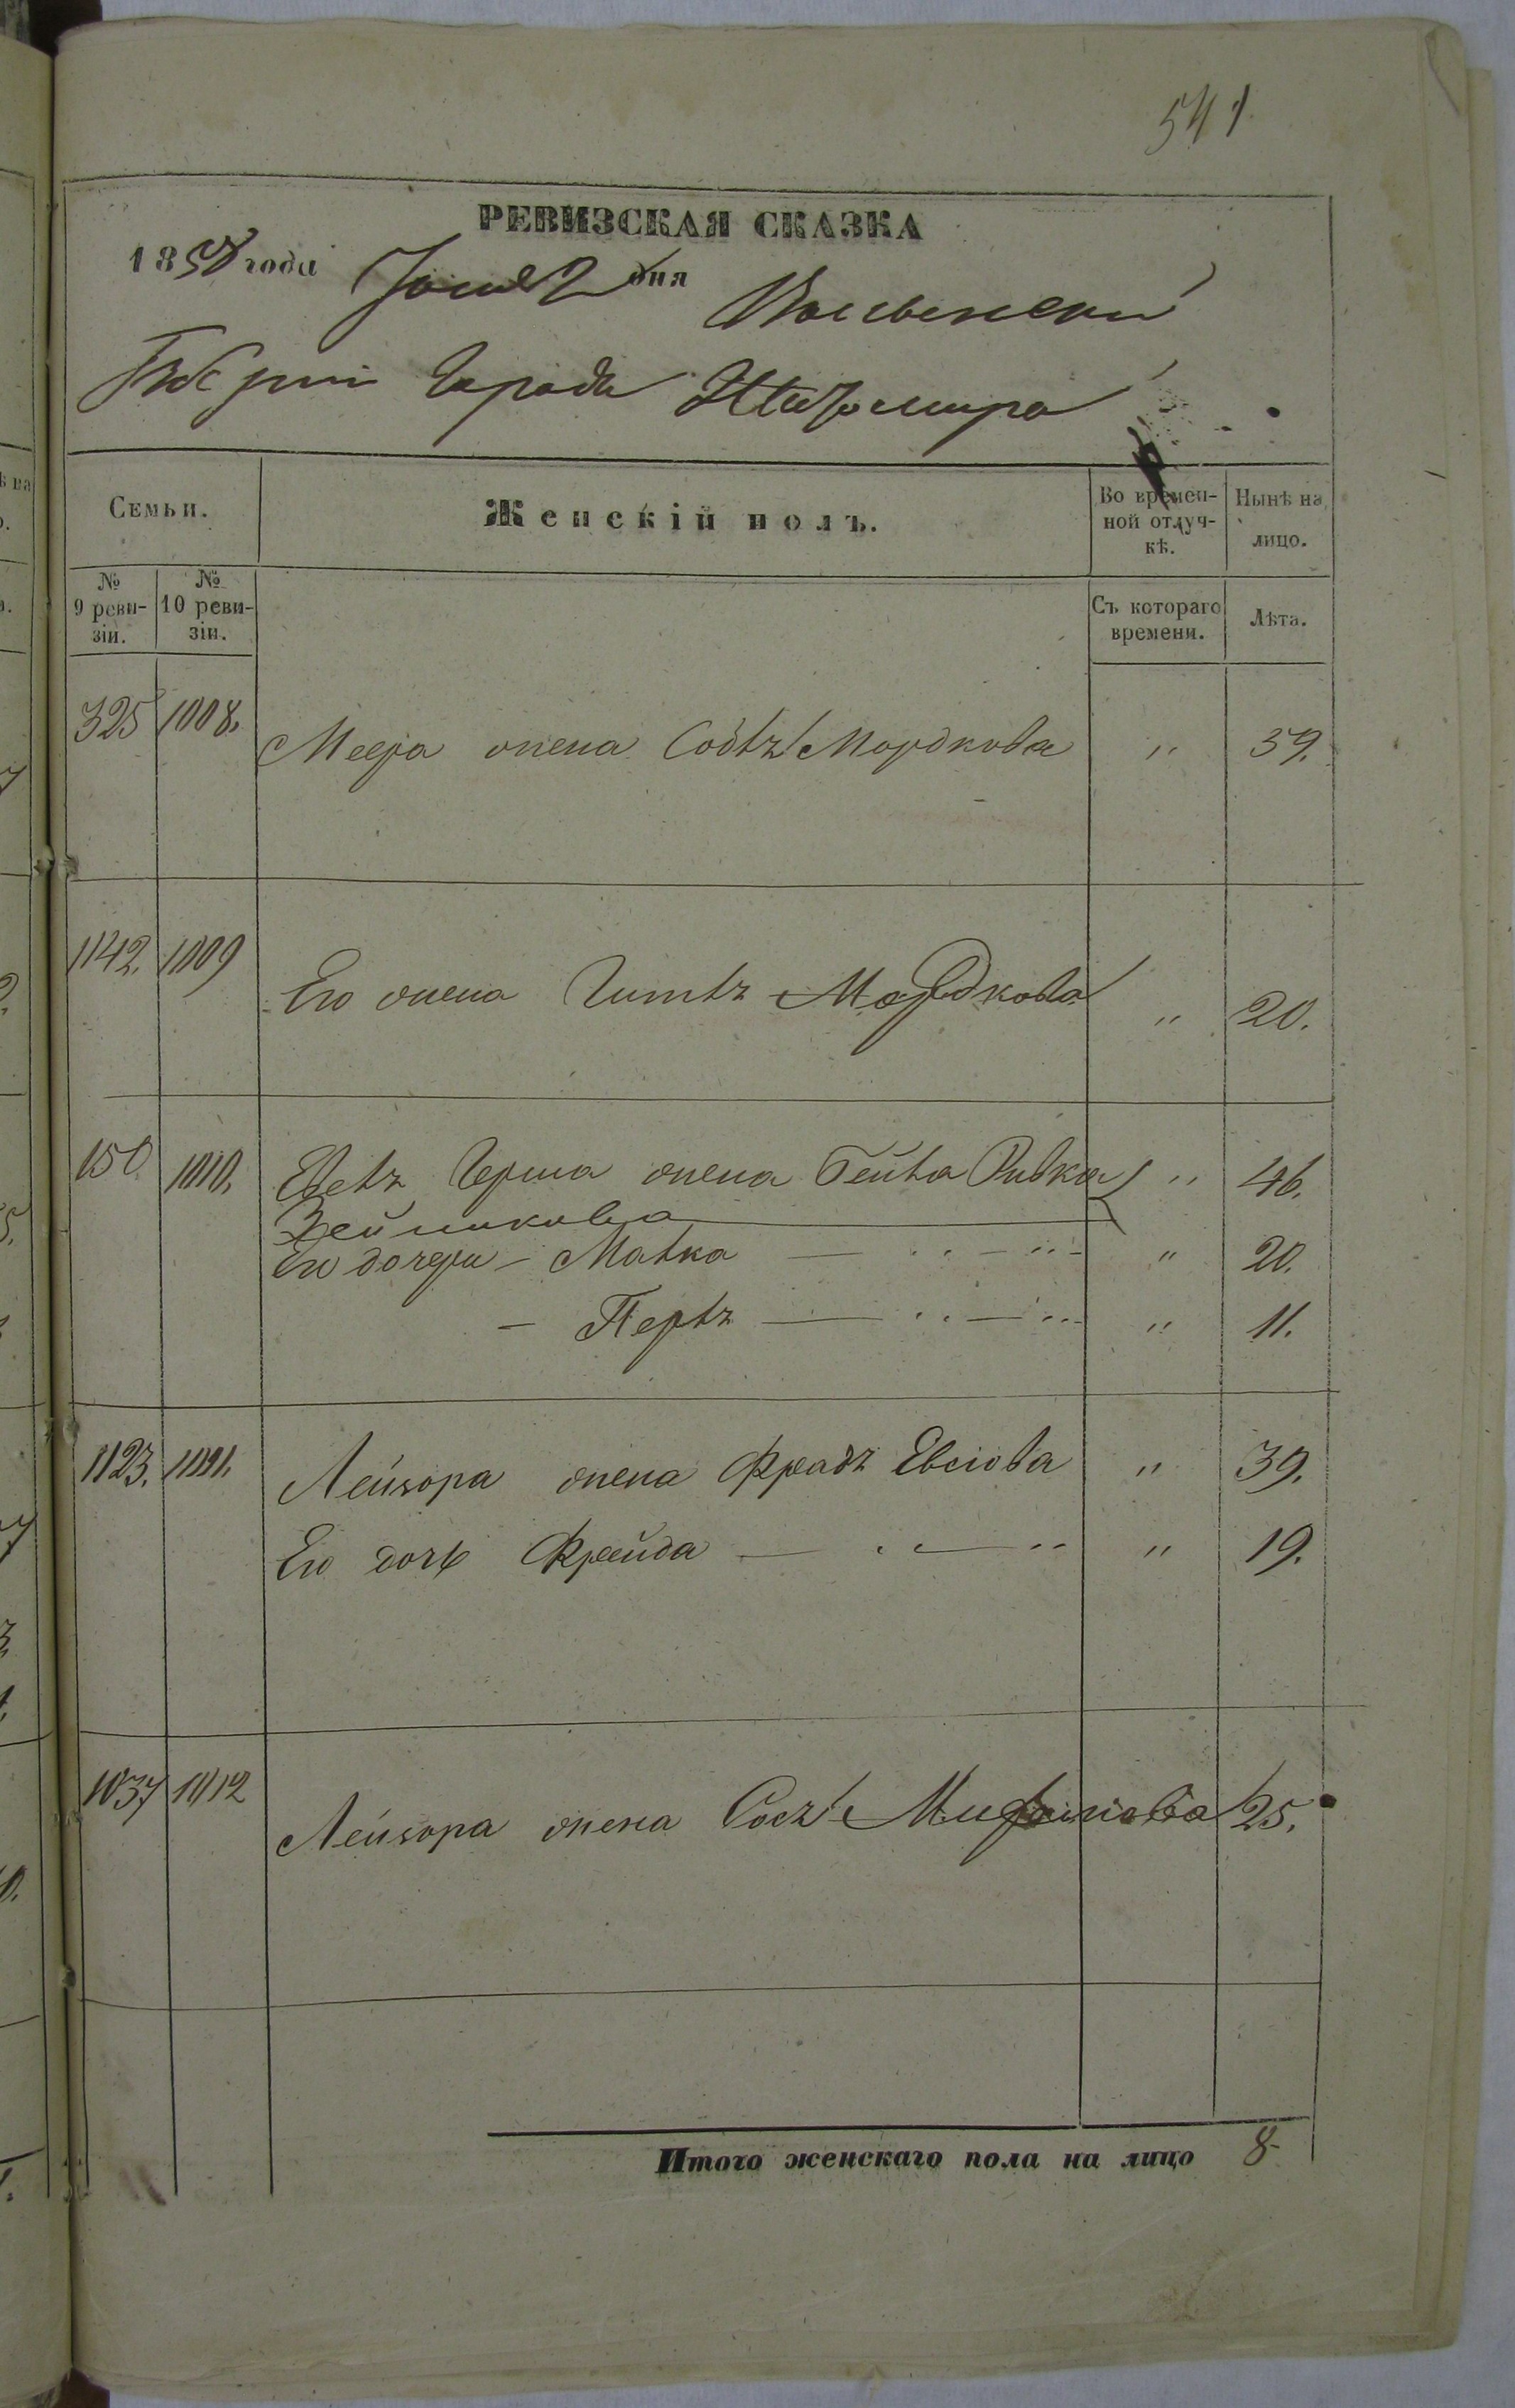 541
РЕВИЗСКАЯ СКАЗКА
1858 года Іюня 2 дня Волынской
Губерніи Города Житомира
Семьи.
Женскій полъ.
Во времен-
ной отлуч-
кѣ.
Нынѣ на
лицо.
№
9 реви-
зіи.
№
10 реви-
зіи.
Съ котораго
времени.
Лѣта.
325 1008. Меера жена Мордкова " 39.
1142. 1009 Его жена Мордкова " 20.
150 1010. Герша жена Ривка " 46.
Зейликова
Его дочери - Малка — " — " " 20.
- Перлъ — " — " " 11.
1123. 1011. Лейзора жена Фрадъ Евсіова " 39.
Его дочь Фрейда — " — " " 19.
1037 1012 Лейзора жена 25.
Итого женскаго пола на лицо 8